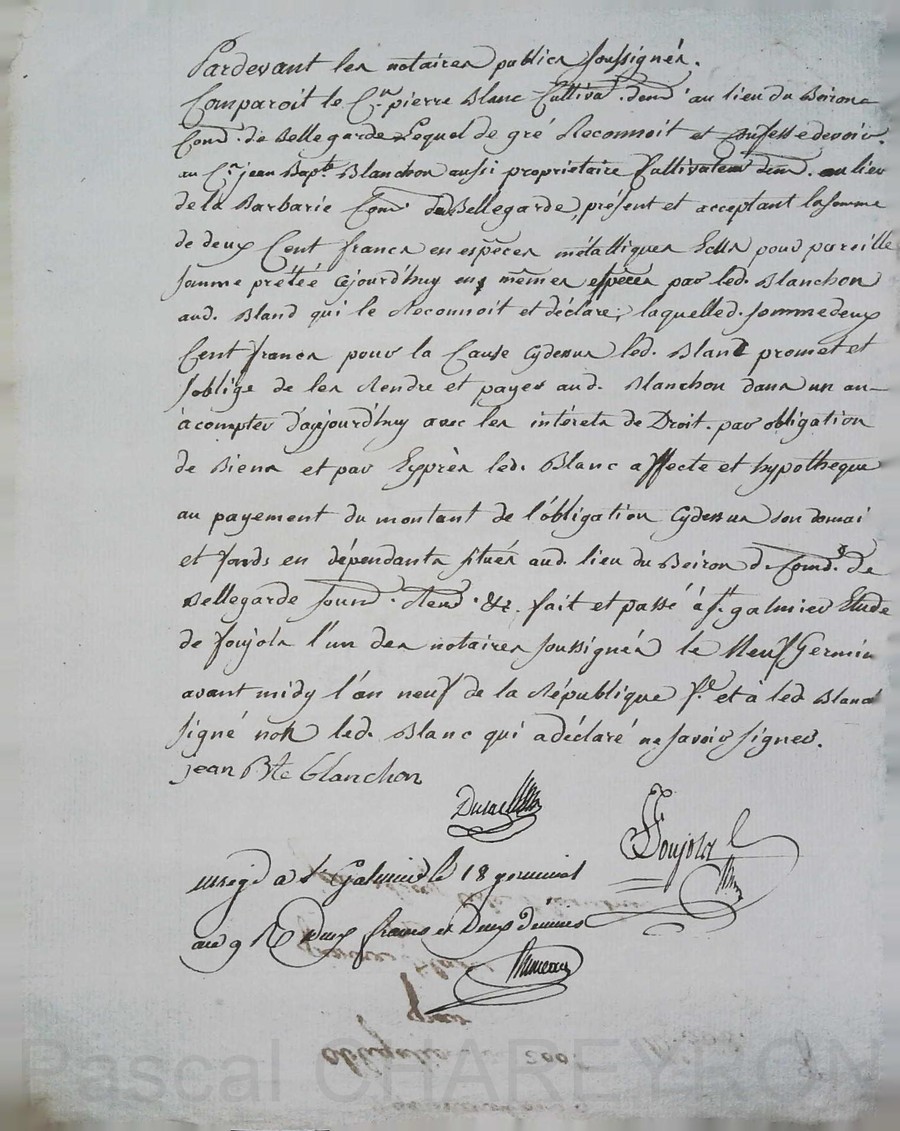 Pardevant les notaires publics soussignés.
Comparoit le C.n pierre Blanc Cultiva.r dem.t au lieu du Boiron
Com.e de Bellegarde Lequel de gré Reconnoit et Confesse devoir
au C.n jean Bapt.te Blanchon aussi propriétaire Cultivateur dem.t au lieu
de la Barbarie Com.e de Bellegarde, présent et acceptant la somme
de deux Cent francs en espèces métalliques Et Ce pour pareille
somme prêtée Cejourd'huy en mêmes espèces par led. Blanchon
aud. Blanc qui le Reconnoit et déclare, laquelle d. somme deux
Cent francs pour la Cause Cydessus led. Blanc promet et
s'oblige de les Rendre et payer aud. Blanchon dans un an
à compter d'aujourd'huy avec les intérets de Droit. par obligation
de Biens et par Exprès led. Blanc affecte et hypotheque
au payement du montant de l'obligation Cydessus son domai
et fonds en dépendants situés aud. lieu du Boiron d. Com.e de
Bellegarde soum. Rend. &c. fait et passé à S.t galmier Etude
de Foujols l'un des notaires soussignés le Neuf Germin
avant midy l'an neuf de la République f.se et à led. Blanc
signé non led. Blanc qui a déclaré ne savoir signer.
jean B.te blanchon
Foujols
enregé a S.t Galmier le 18 germinal
an 9 R Deux francs et Deux Decimes
obligation 200
Pascal CHAREYRON